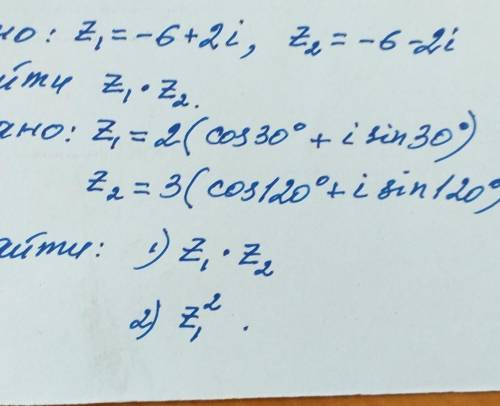 но: z₁ = -6 + 2i, z₂ = -6 - 2i
йти z₁ · z₂.
ано: z₁ = 2(cos30° + i sin30°)
z₂ = 3(cos120° + i sin120°)
айти: 1) z₁ · z₂
2) z₁² .